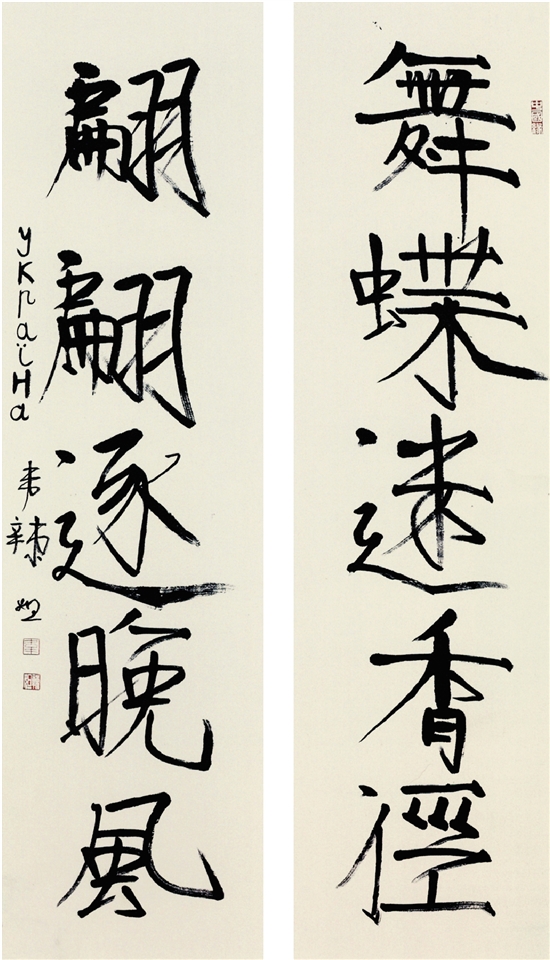 舞蝶迷香徑
翩翩逐晚風
Україна